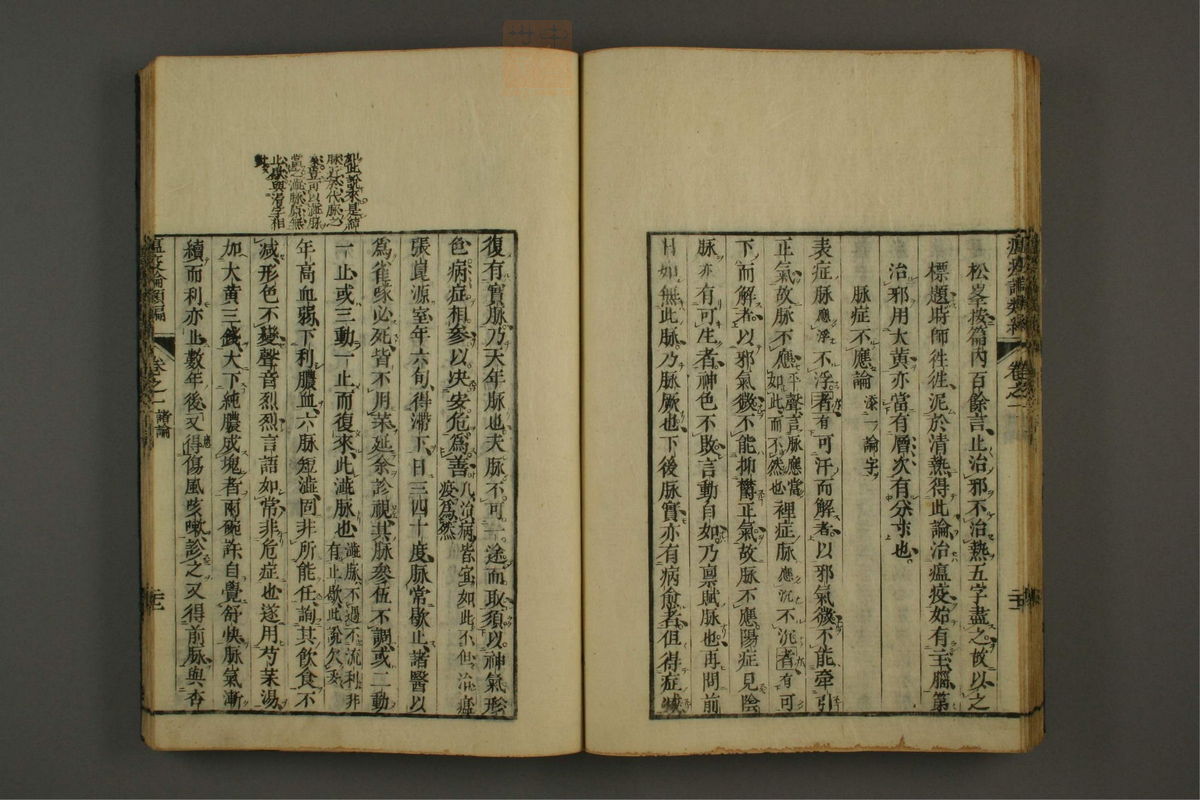 松峯按篇內百餘言止治邪不治熱五字盡之故以之
標題時師徃徃泥於清熱得此論治瘟疫始有主腦第
治邪用大黄亦當有層次有分寸也
脉症不應論添一論字
表症脉應浮不浮者有可汗而解者以邪氣微不能牽引
正氣故脉不應平聲言脉應當如此而不然也裡症脉應沉不沉者有可
下而解者以邪氣微不能抑鬱正氣故脉不應陽症見陰
脉亦有可生者神色不敗言動自如乃禀賦脉也再問前
日如無此脉乃脉厥也下後脉實亦有病愈者但得症減
復有實脉乃天年脉也夫脉不可一途而取須以神氣形
色病症相參以決安危爲善凡治病皆宜如此不但治瘟疫爲然
張崑源室年六旬得滯下日三四十度脉常歇止諸醫以
爲雀啄必死皆不用藥延余診視其脉參伍不調或二動
一止或三動一止而復來此澁脉也澁脉不過不流利非有止歇此說欠妥
年高血弱下利膿血六脉短澁固非所能任詢其飲食不
減形色不變聲音烈烈言語如常非危症也遂用芍藥湯
加大黄三錢大下純膿成塊者兩碗許自覺舒快脉氣漸
續而利亦止數年後又得傷風咳嗽診之又得前脉與杏
如此說來是結
脉近於代脉之
象豈可以澁脉
當之澁脉原無
止歇與滑字相
對
瘟疫論類編
卷之一
諸論
瘟疫論類編
卷之一